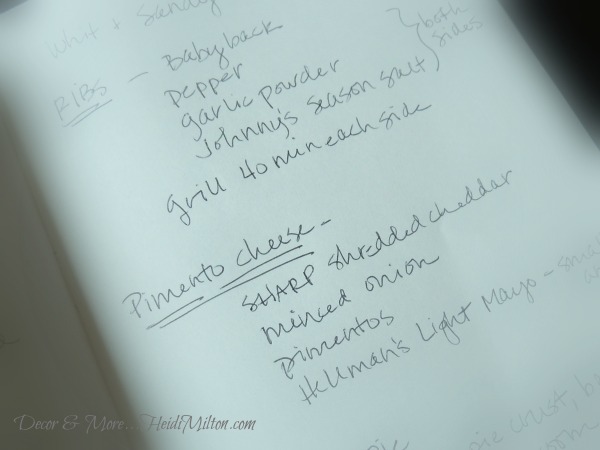 whit + Sandy
RIBS - Babyback
pepper
garlic powder
Johnny's season salt
both
sides
grill 40 min each side
Pimento cheese -
SHARP shredded cheddar
minced onion
pimentos
Hellman's Light Mayo - small
pie crust,
Decor & More...HeidiMilton.com